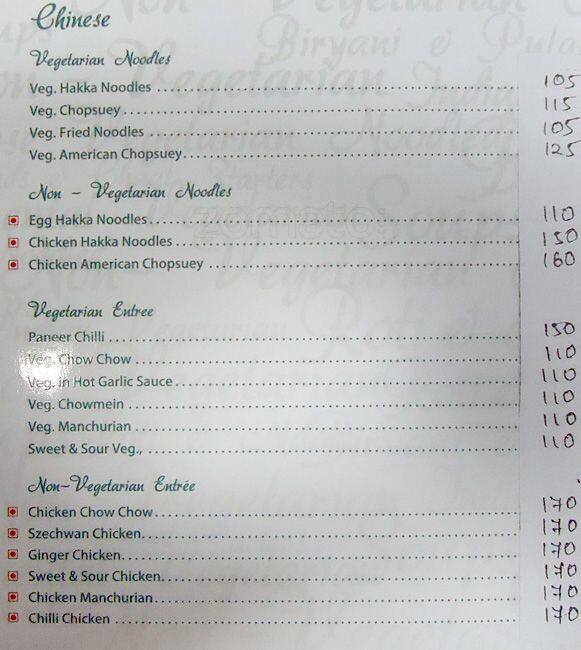 Chinese
Vegetarian Noodles
Veg. Hakka Noodles 105
Veg. Chopsuey 115
Veg. Fried Noodles 105
Veg. American Chopsuey 125
Non - Vegetarian Noodles
Egg Hakka Noodles 110
Chicken Hakka Noodles 150
Chicken American Chopsuey 160
Vegetarian Entree
Paneer Chilli 150
Veg. Chow Chow 110
Veg. in Hot Garlic Sauce 110
Veg. Chowmein 110
Veg. Manchurian 110
Sweet & Sour Veg., 110
Non-Vegetarian Entrée
Chicken Chow Chow 170
Szechwan Chicken 170
Ginger Chicken 170
Sweet & Sour Chicken 170
Chicken Manchurian 170
Chilli Chicken 170
zomato